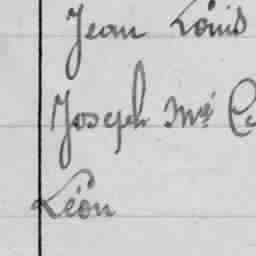 Jean Louis
Joseph Mie
Léon